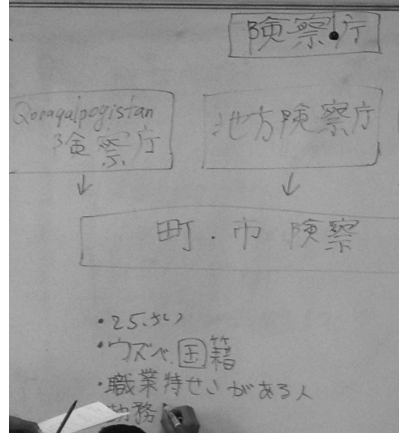 険察庁
Qoraqalpogistan
険察庁
地方険察庁
町・市 険察
・25さい
・ウズベ国籍
・職業特せいがある人
勤務